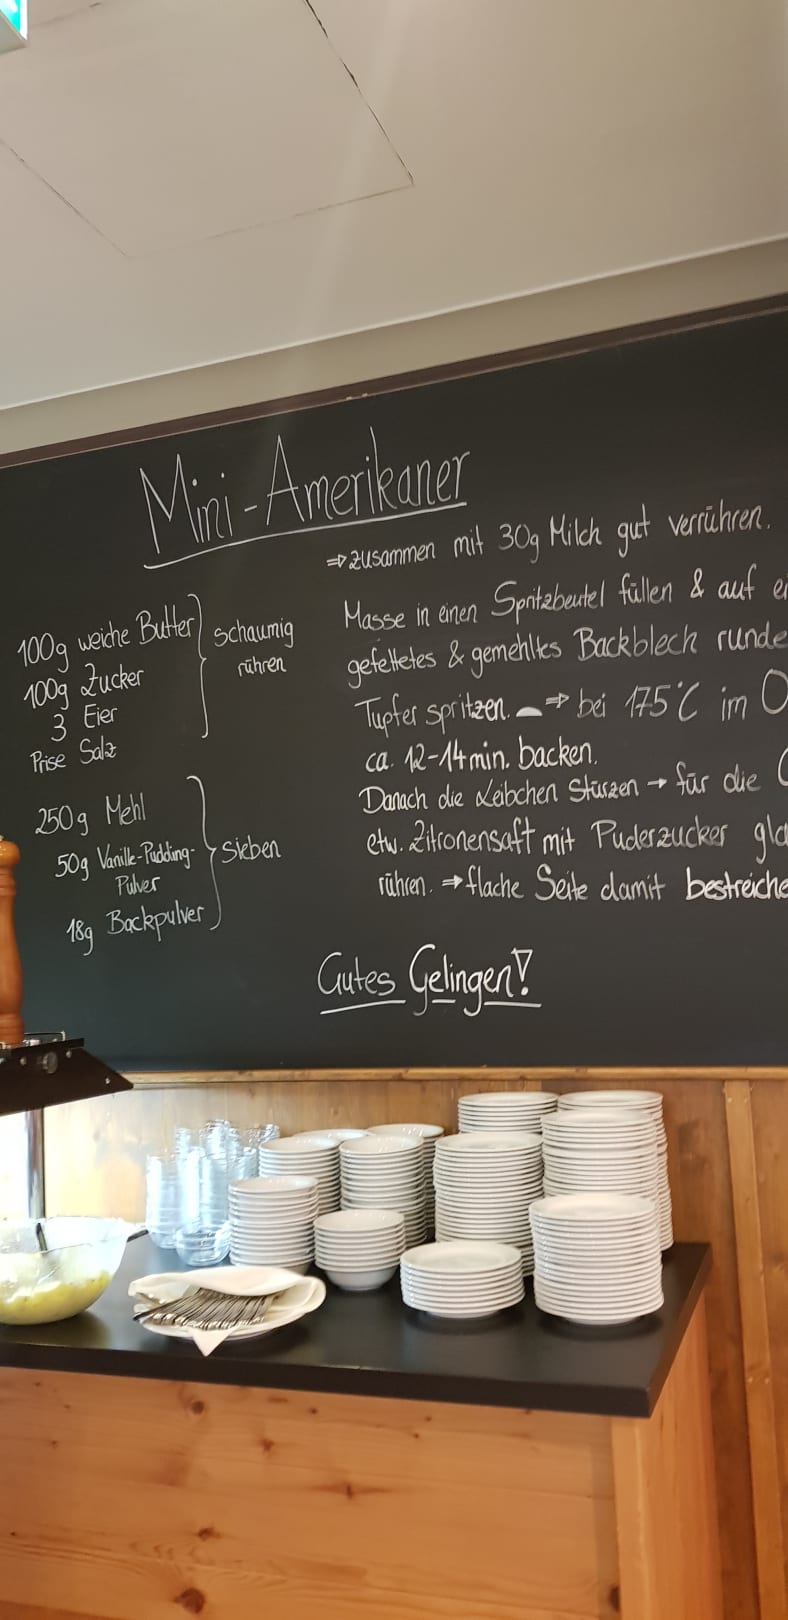 Mini-Amerikaner
100g weiche Butter
100g Zucker
3 Eier
Prise Salz
schaumig
rühren
250g Mehl
50g Vanille-Pudding-
Pulver
18g Backpulver
sieben
⇒ zusammen mit 30g Milch gut verrühren.
Masse in einen Spritzbeutel füllen & auf
gefettetes & gemehltes Backblech runde
Tupfer spritzen. ⇒ bei 175°C im
ca. 12-14min. backen.
Danach die Leibchen stürzen → für die
etw. Zitronensaft mit Puderzucker
rühren. ⇒ flache Seite damit bestreiche
Gutes Gelingen!